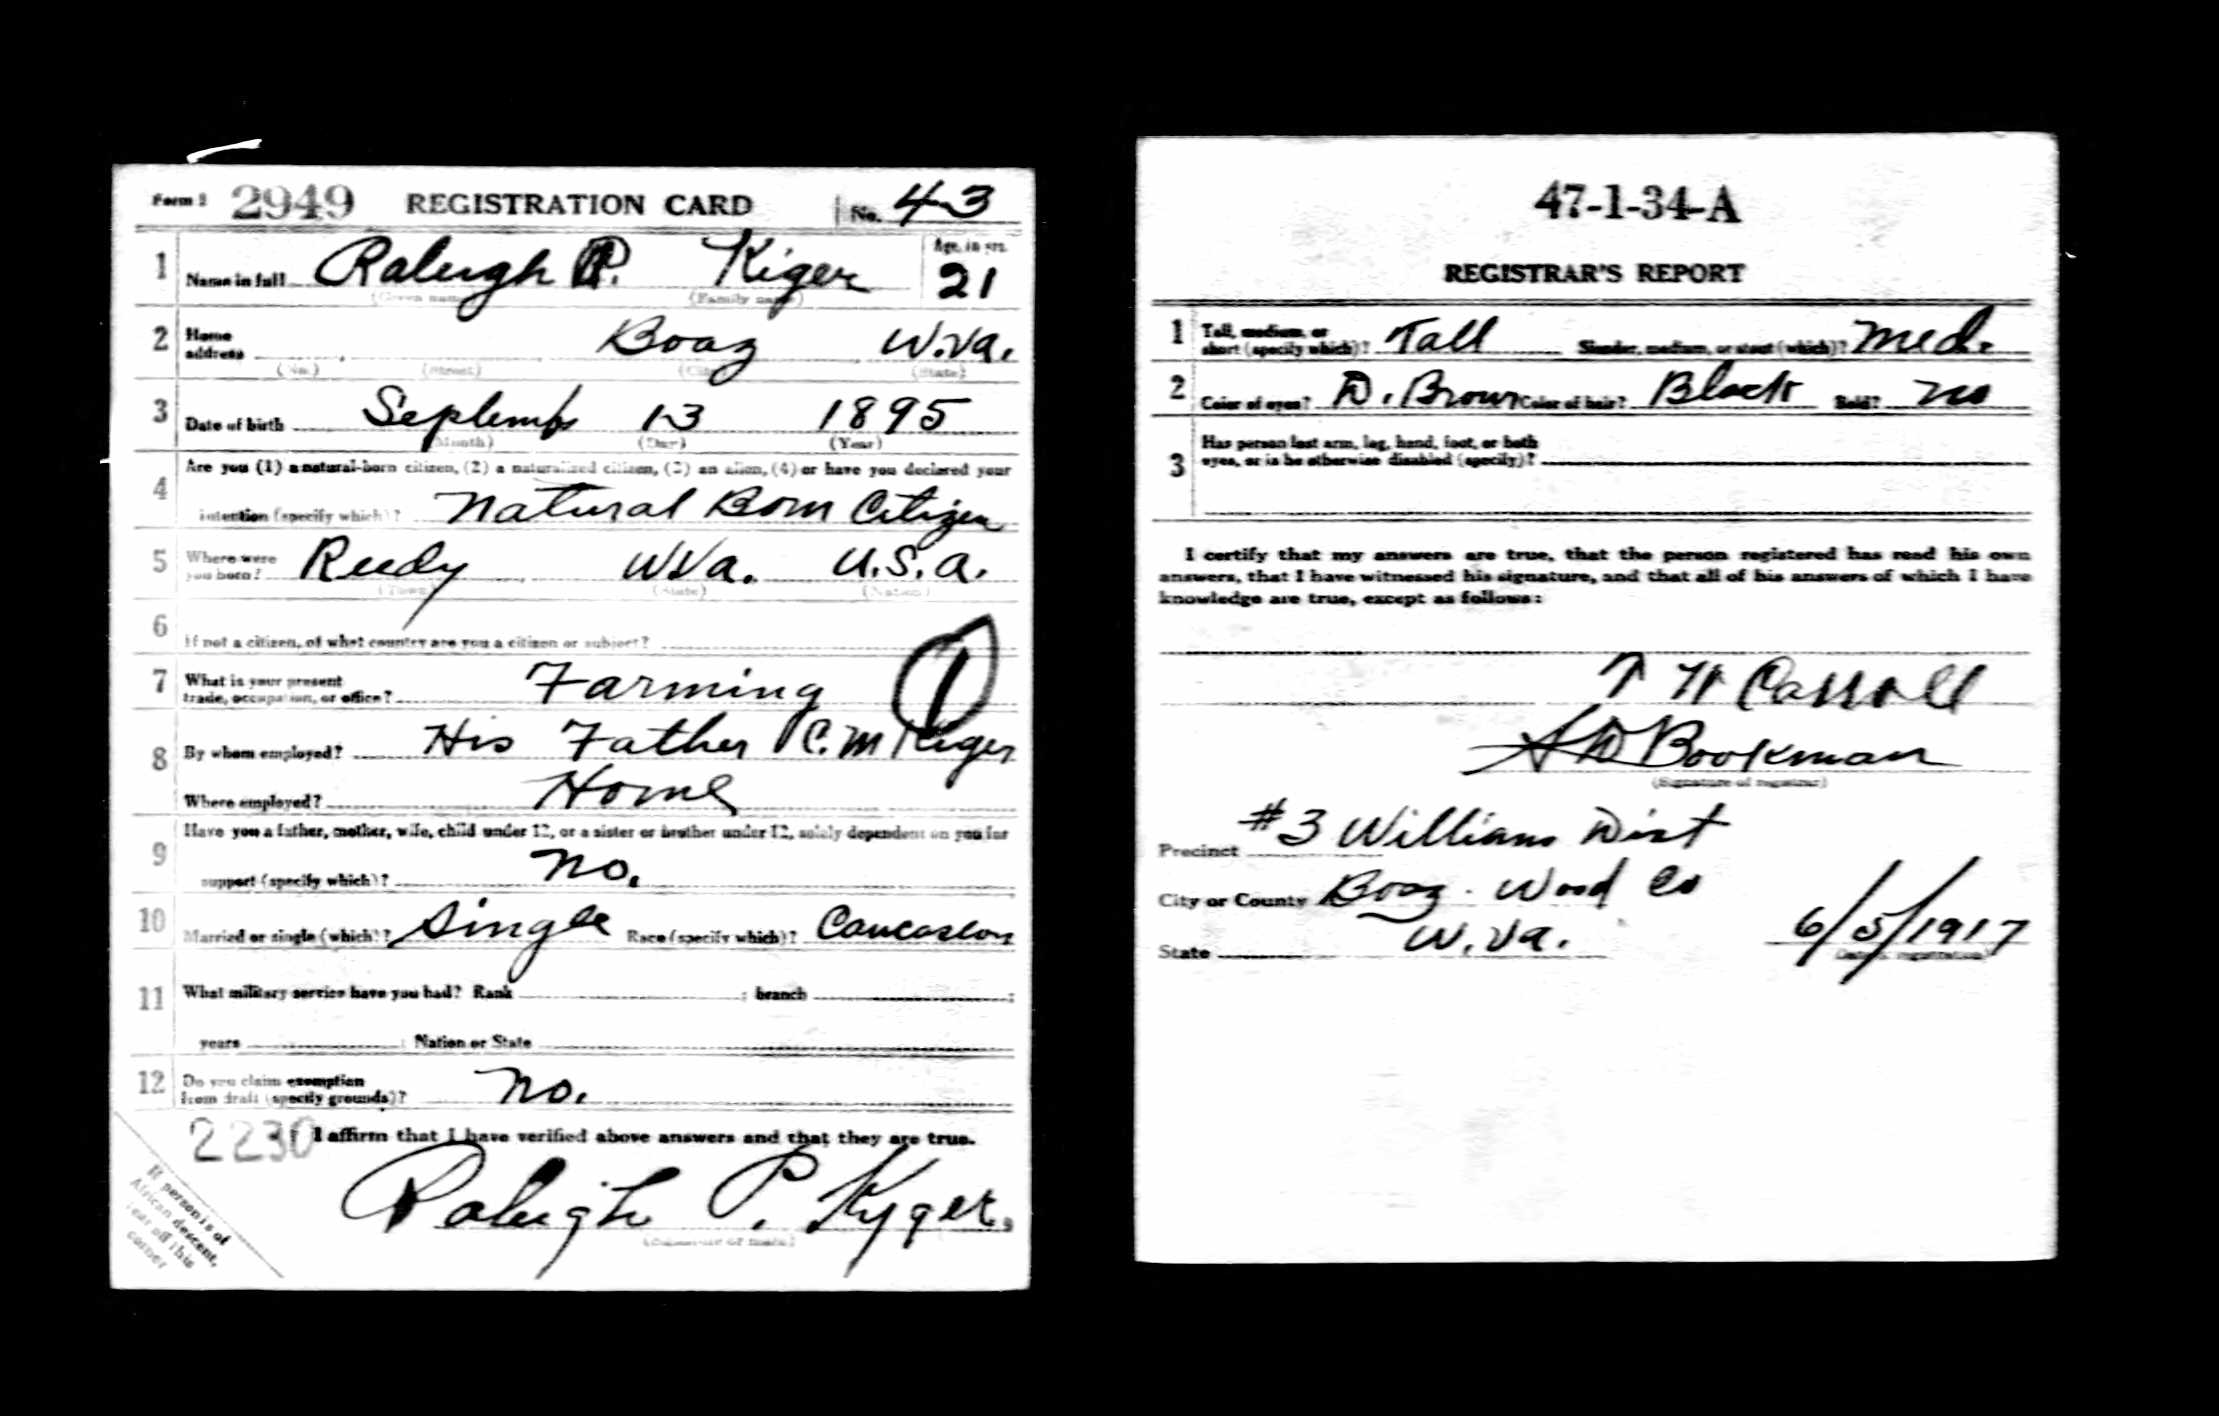 Form 1 2949 REGISTRATION CARD No. 43
1 Name in full Raleigh P. Kiger Age, in yrs. 21
(Given name) (Family name)
2 Home address Boaz W.Va.
(No.) (Street) (City) (State)
3 Date of birth Septemb 13 1895
(Month) (Day) (Year)
4 Are you (1) a natural-born citizen, (2) a naturalized citizen, (3) an alien, (4) or have you declared your
intention (specify which)? Natural Born Citizen
5 Where were you born? Reedy W.Va. U.S.A.
(Town) (State) (Nation)
6 If not a citizen, of what country are you a citizen or subject?
7 What is your present
trade, occupation, or office? Farming 1
8 By whom employed? His Father C. M Kiger
Where employed? Home
9 Have you a father, mother, wife, child under 12, or a sister or brother under 12, solely dependent on you for
support (specify which)? No.
10 Married or single (which)? Single Race (specify which)? Caucasion
11 What military service have you had? Rank ; branch ;
years ; Nation or State
12 Do you claim exemption
from draft (specify grounds)? No.
2230 I affirm that I have verified above answers and that they are true.
Raleigh P. Kyger
(Signature or mark)
If person is of
African descent,
tear off this
corner
47-1-34-A
REGISTRAR'S REPORT
1 Tall, medium, or
short (specify which)? Tall Slender, medium, or stout (which)? Med.
2 Color of eyes? D. Brown Color of hair? Black Bald? No
3 Has person lost arm, leg, hand, foot, or both
eyes, or is he otherwise disabled (specify)?
I certify that my answers are true, that the person registered has read his own
answers, that I have witnessed his signature, and that all of his answers of which I have
knowledge are true, except as follows:
Carroll
Bookman
(Signature of registrar)
Precinct #3 Williams Dist
City or County Boaz. Wood Co
State W.Va. 6/5/1917
(Date of registration)